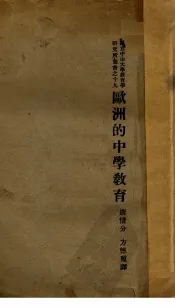 國立中山大學教育學
研究所叢書之十九
歐洲的中學教育
方惇頤譯